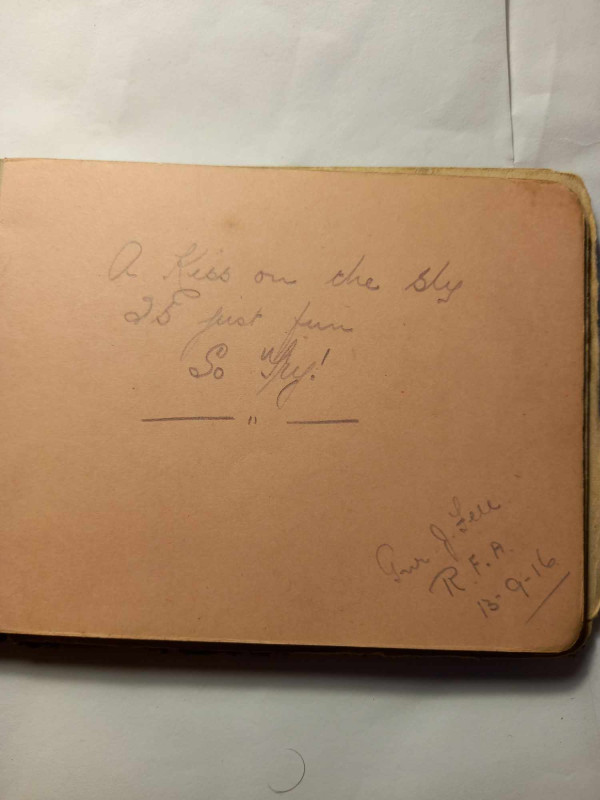 A Kiss on the sly
IS just fun
So "Try!
— " —
Gnr J. Fell
R.F.A.
13-9-16